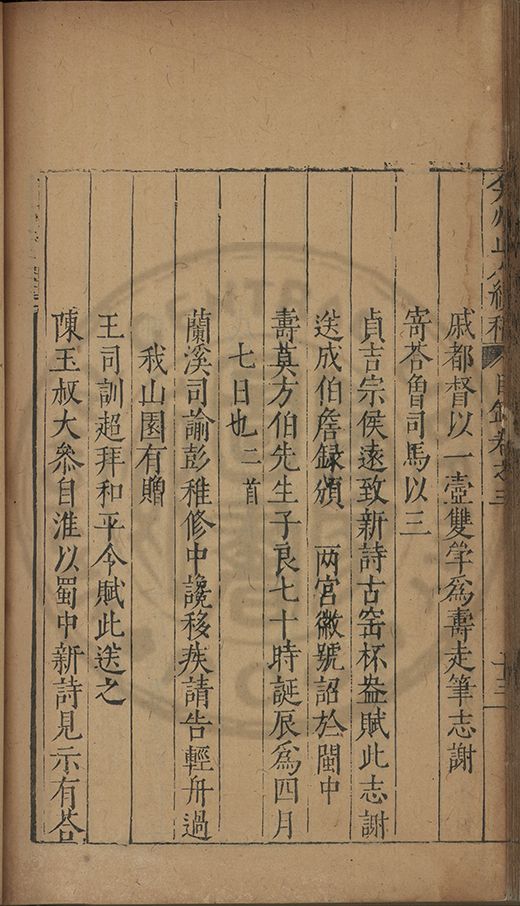 弇州山人續稿 目錄卷之三 十三
戚都督以一壺雙斝爲壽走筆志謝
寄荅曾司馬以三
貞吉宗侯遠致新詩古窑杯盎賦此志謝
送成伯詹録頒 兩宮徽號詔於閩中
壽莫方伯先生子良七十時誕辰爲四月
七日也二首
蘭溪司諭彭稚修中讒移疾請告輕舟過
我山園有贈
王司訓超拜和平令賦此送之
陳玉叔大參自淮以蜀中新詩見示有荅